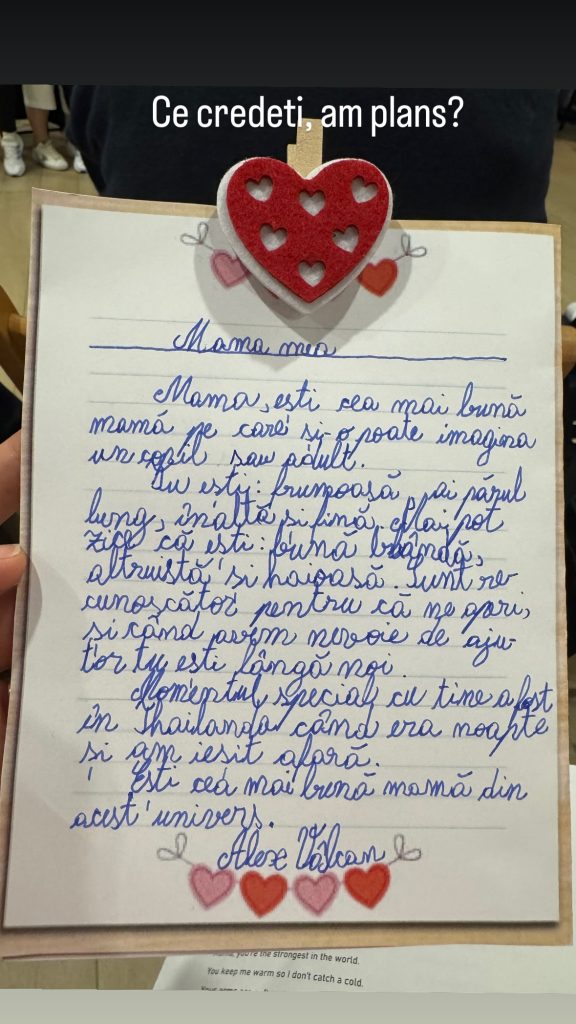 Ce credeti, am plans?
Mama mea
Mama, ești cea mai bună
mamă pe care și-o poate imagina
un copil sau adult.
Tu ești: frumoasă, ai părul
lung, înaltă și fină. Mai pot
zice că ești: bună blândă,
altruistă și haioasă. Sunt re-
cunoscător pentru că ne aperi,
și când avem nevoie de aju-
tor tu ești lângă noi.
Momentul special cu tine a fost
în Thailanda când era noapte
și am ieșit afară.
Ești cea mai bună mamă din
acest univers.
Alex Vâlcan
Mama, you're the strongest in the world.
You keep me warm so I don't catch a cold.